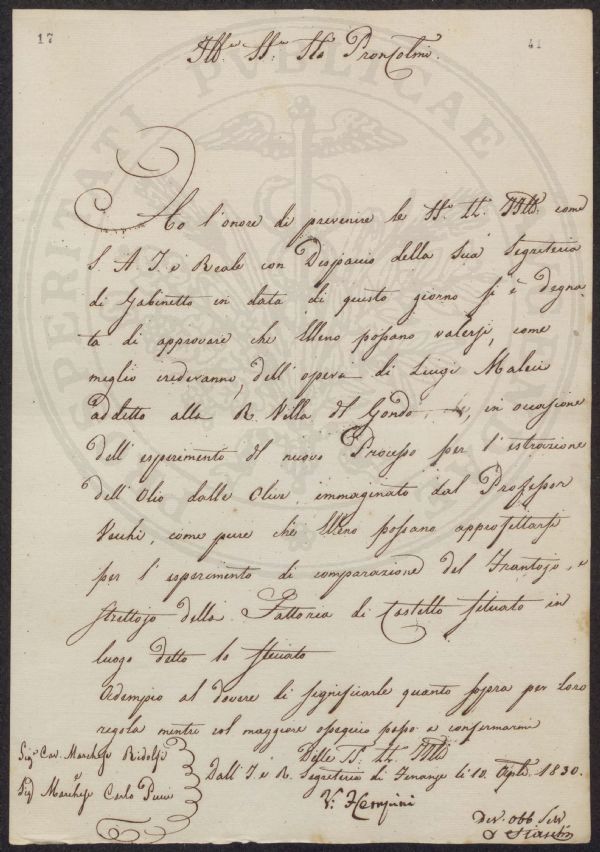 17
41
Ill.mi SS.ri SSi Pron Colmi.
Ho l'onore di prevenire le SS.e LL. Ill. come
S. A. I. e Reale con Dispaccio della Sua Segreteria
di Gabinetto in data di questo giorno si è degna-
ta di approvare che Elleno possano valersi, come
meglio crederanno, dell'opera di Luigi
addetto alla R. Villa del in occasione
dell'esperimento del nuovo Processo per l'estrazione
dell'Olio dalle Ulive immaginato dal Professor
Vecchi, come pure che Elleno possano approfittarsi
per l'esperimento di comparazione del Frantojo, e
Strettojo della Fattoria di Castello situato in
luogo detto lo Steccato
Adempio al dovere di significarle quanto sopra per Loro
regola mentre col maggiore ossequio passo a confermarmi
Delle SS. LL. Ill.
Sig.r Cav. Marchese Ridolfi
Sig.r Marchese Carlo Pucci
Dall'I. e R. Segreteria di Finanze li 10. 1830.
V:
Dev. Obb. Serv
PUBLICAE